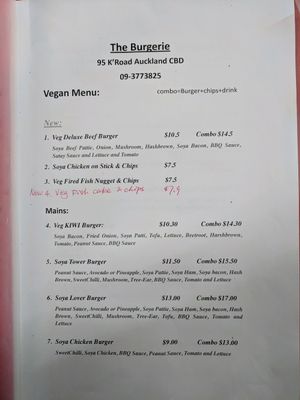 The Burgerie
95 K'Road Auckland CBD
09-3773825
Vegan Menu: combo=Burger+chips+drink
New:
1. Veg Deluxe Beef Burger $10.5 Combo $14.5
Soya Beef Pattie, Onion, Mushroom, Hashbrown, Soya Bacon, BBQ Sauce,
Satay Sauce and Lettuce and Tomato
2. Soya Chicken on Stick & Chips $7.5
3. Veg Fired Fish Nugget & Chips $7.5
New 4. Veg Fish cake & chips $7.9
Mains:
4. Veg KIWI Burger: $10.30 Combo $14.30
Soya Bacon, Fried Onion, Soya Patti, Tofu, Lettuce, Beetroot, Harshbrown,
Tomato, Peanut Sauce, BBQ Sauce
5. Soya Tower Burger $11.50 Combo $15.50
Peanut Sauce, Avocado or Pineapple, Soya Pattie, Soya Ham, Soya bacon, Hash
Brown, SweetChilli, Mushroom, Tree-Ear, BBQ Sauce, Tomato and Lettuce
6. Soya Lover Burger $13.00 Combo $17.00
Peanut Sauce, Avocado or Pineapple, Soya Pattie, Soya Ham, Soya bacon, Hash
Brown, SweetChilli, Mushroom, Tree-Ear, Tofu, BBQ Sauce, Tomato and
Lettuce
7. Soya Chicken Burger $9.00 Combo $13.00
SweetChilli, Soya Chicken, BBQ Sauce, Peanut Sauce, Tomato and Lettuce